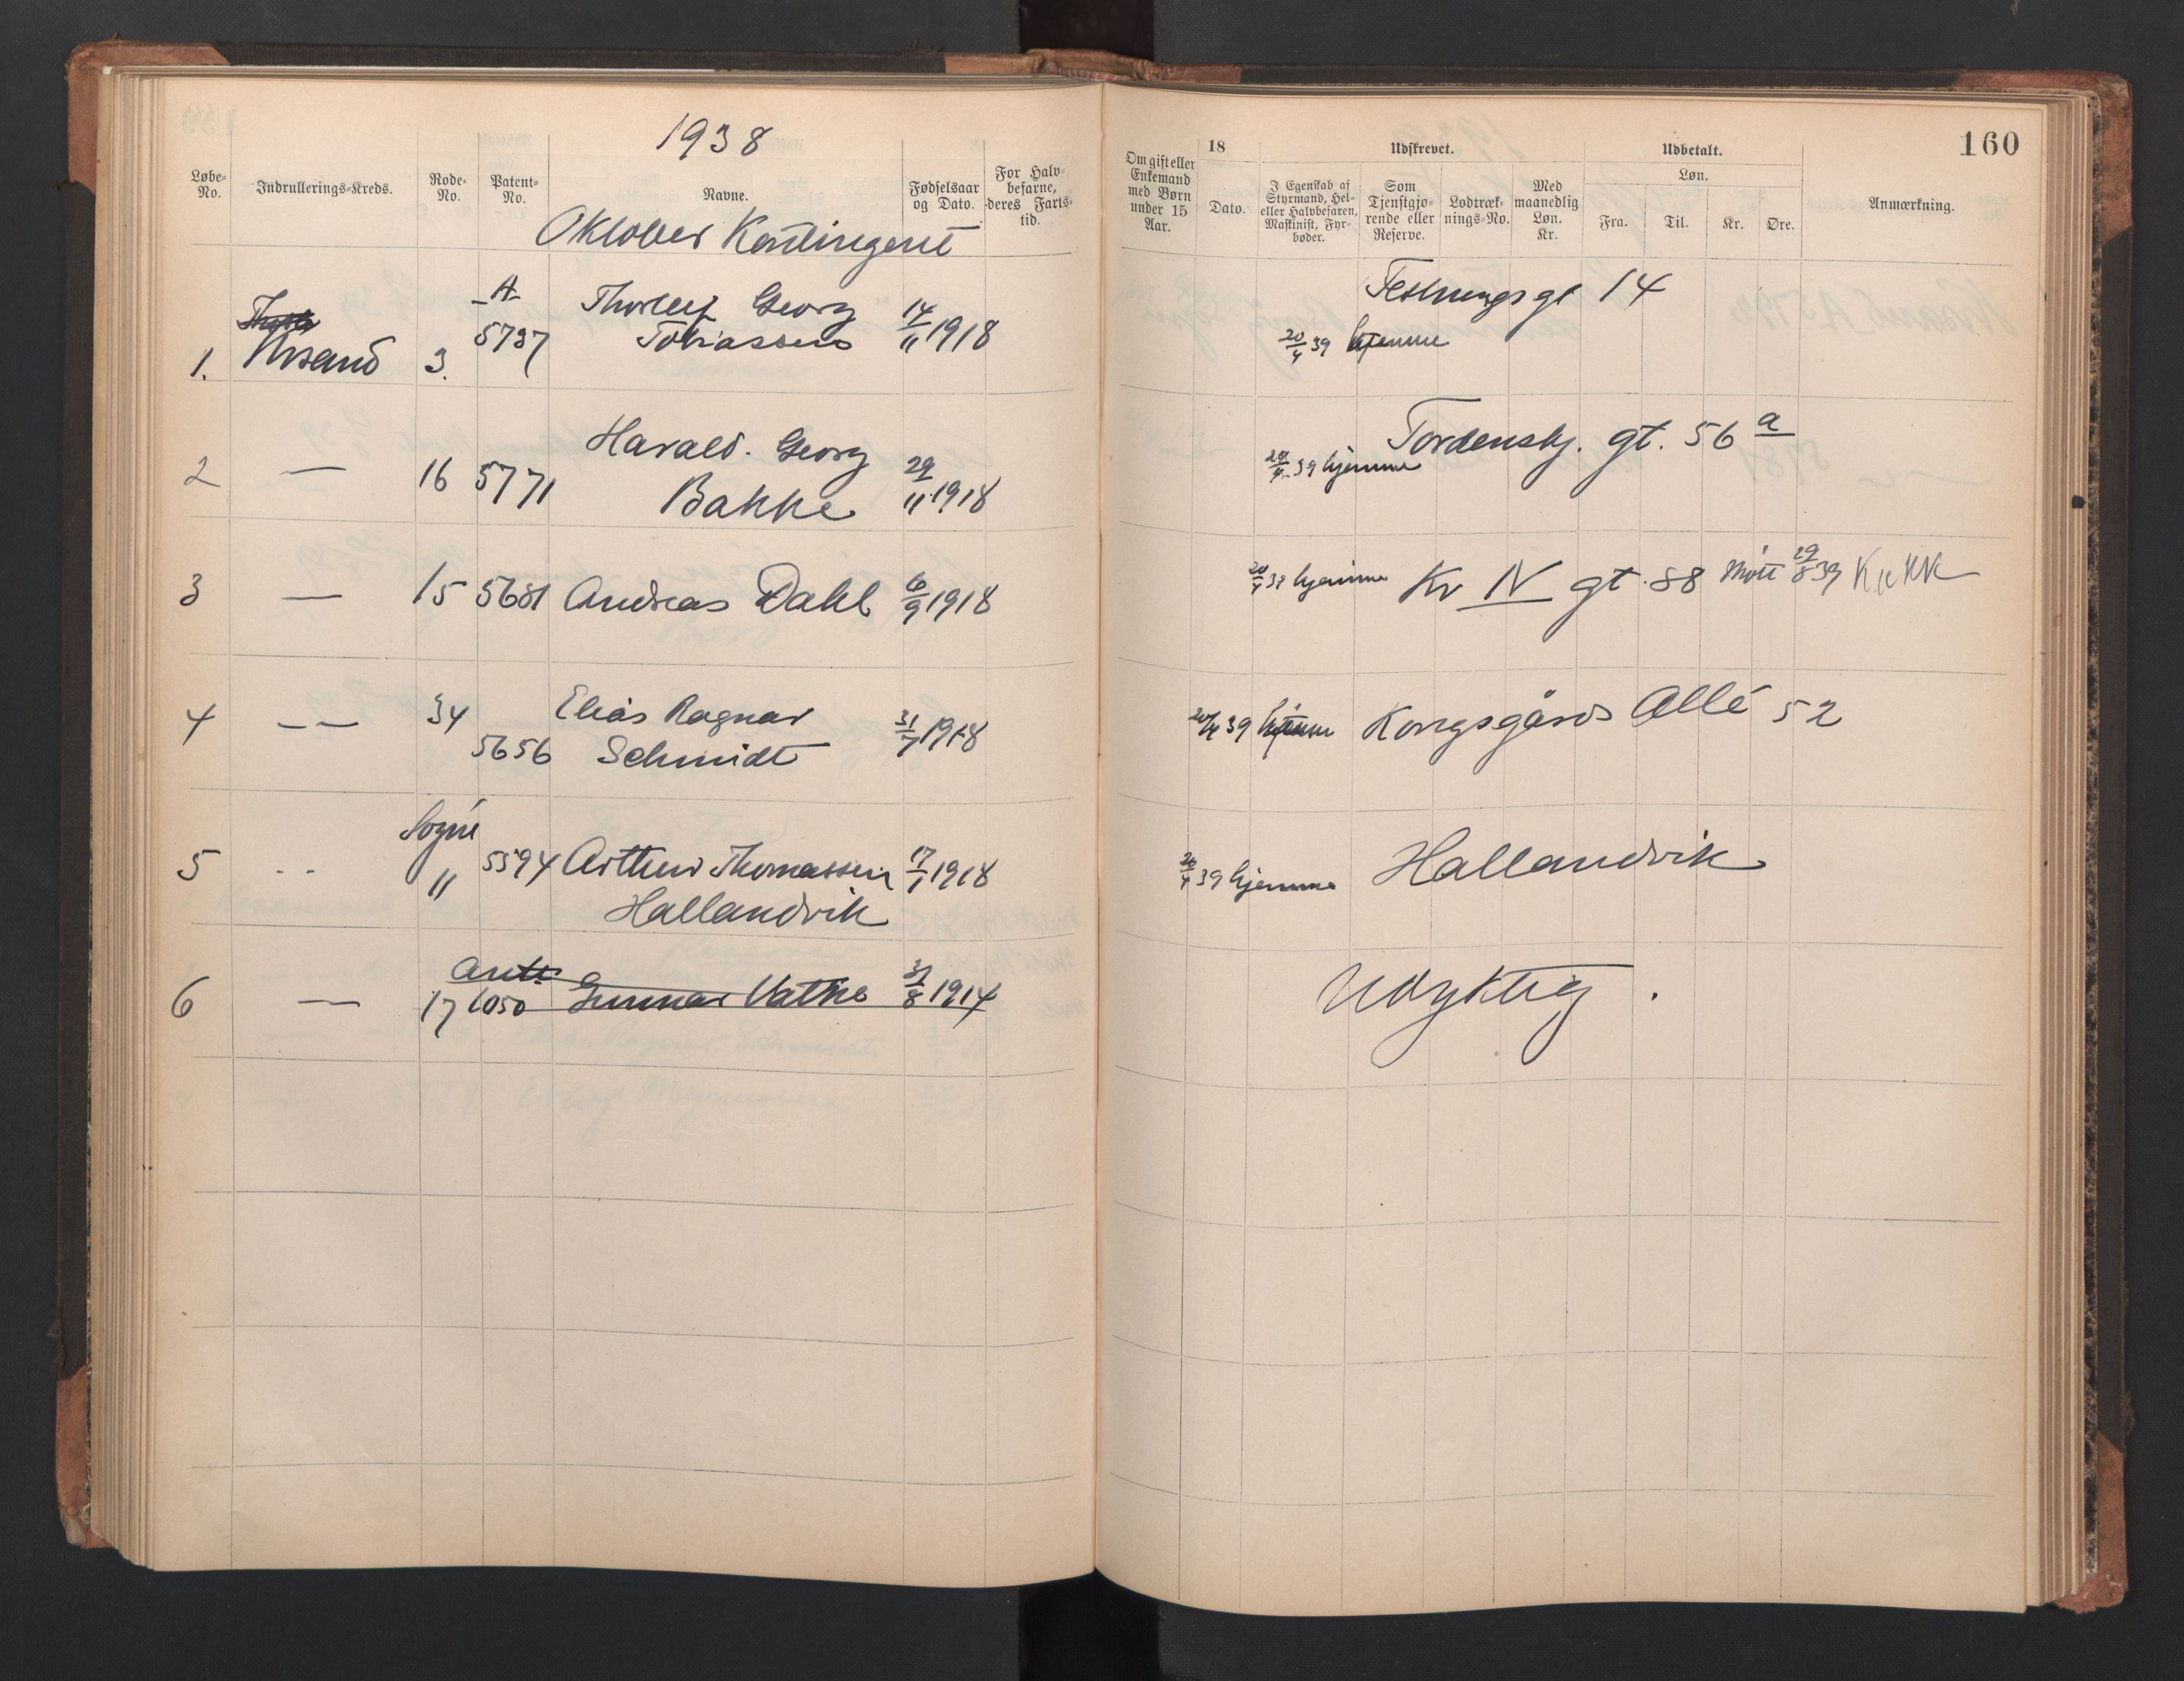 1938
Løbe-No.
Indrullerings-Kreds.
Rode-No.
Patent-No.
Navne.
Fødselsaar og Dato.
For Halvbefarne, deres Fartstid.
Oktober Kontingent
1. Krsand 3. A 5737 Thorleif Georg Tobiassen 14/11 1918
2 — 16 5771 Harald. Georg Bakke 29/11 1918
3 — 15 5681 Andreas Dahl 6/9 1918
4 — — 34 5656 Elias Ragnar Schmidt 31/7 1918
5 - - Søgne 11 5594 Arthur Thomassen Hallandvik 17/1 1918
6 — 17 1050 Gunnar Vatne 31/8 1914
160
Om gift eller Enkemand med Børn under 15 Aar.
18
Dato.
Udskrevet.
I Egenskab af Styrmand, Hel- eller Halvbefaren, Maskinist, Fyrbøder.
Som Tjenstgjørende eller Reserve.
Lodtræknings-No.
Med maanedlig Løn. Kr.
Udbetalt.
Løn.
Fra.
Til.
Kr.
Øre.
Anmærkning.
Festningsgt 14
20/4 39 hjemme
Tordenskj. gt. 56 a
20/4 39 hjemme
20/4 39 hjemme Kr IV gt. 88 Møtt 29/8 39
20/4 39 hjemme Kongsgårds Allé 52
20/4 39 hjemme Hallandvik
Udyktig.